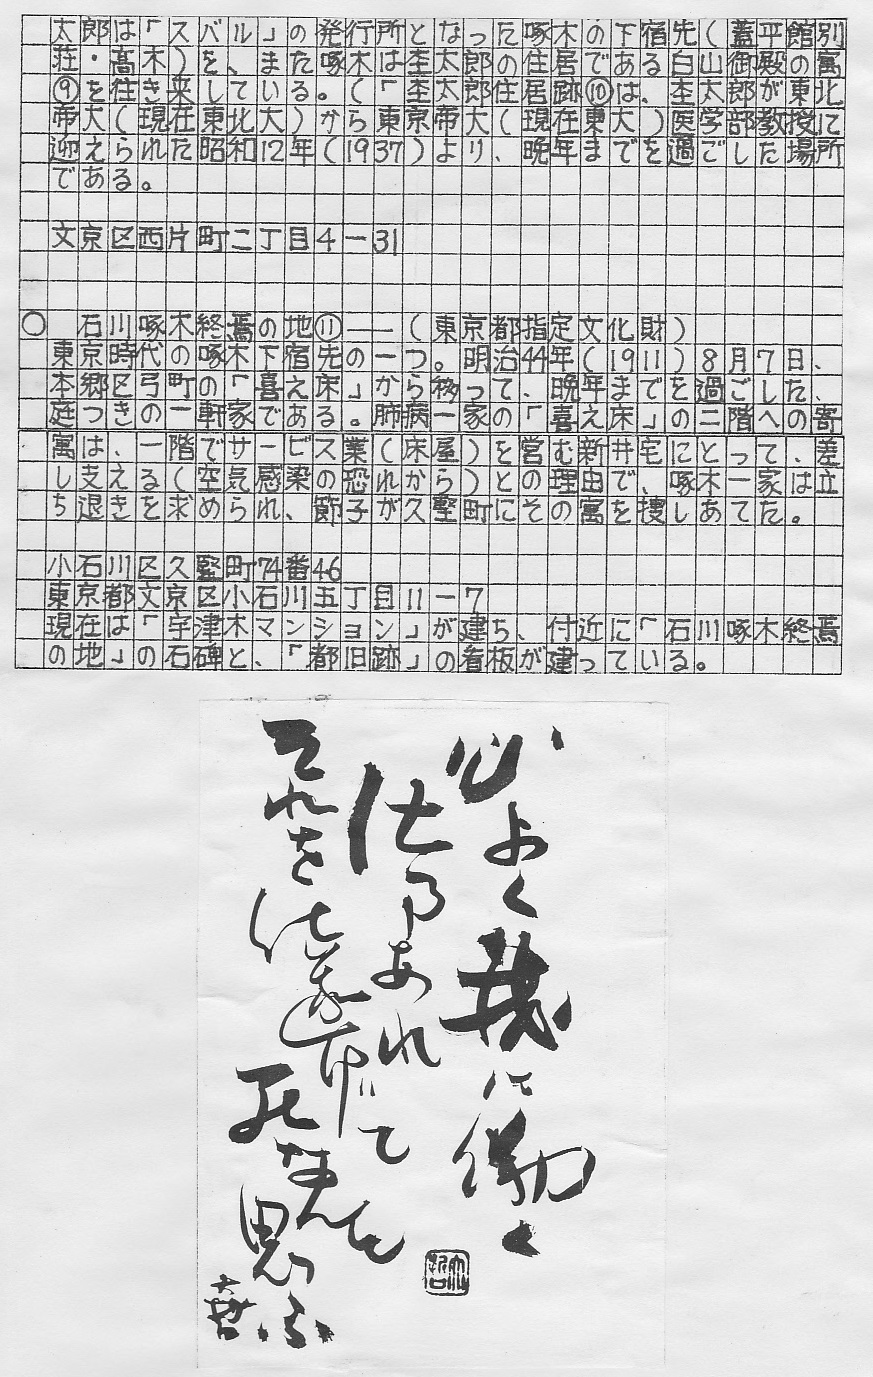 太郎は「スバル」の発行所となった啄木の下宿先(蓋平館別
荘・高木)を、また啄木は杢太郎の住居である白山御殿の寓
⑨を往き来している。(「杢太郎住居跡⑩は、杢太郎が東北
帝大(現在東北大)から東京帝大(現在東大)医学部教授に
迎えられた昭和12年(1937)より、晩年までを過ごした場所
である。
文京区西片町二丁目4ー31
○ 石川啄木終焉の地⑪――(東京都指定文化財)
東京時代の啄木下宿先の一つ。明治44年(1911)8月7日、
本郷区弓町の「喜え床」から移って、晩年までを過ごした、
庭つきの一軒家である。肺病一家の「喜え床」の二階への寄
寓は、一階でサービス業(床屋)を営む新井宅にとって、差
し支える(空気感染の恐れから)との理由で、啄木一家は立
ち退きを求められ、節子が久堅町にその寓を捜しあてた。
小石川区久堅町74番46
東京都文京区小石川五丁目11ー7
現在は「宇津木マンション」が建ち、付近に「石川啄木終焉
の地」の石碑と、「都旧跡」の看板が建っている。
心よく我に働く
仕事あれ
それを仕遂げて
死なんと
思ふ